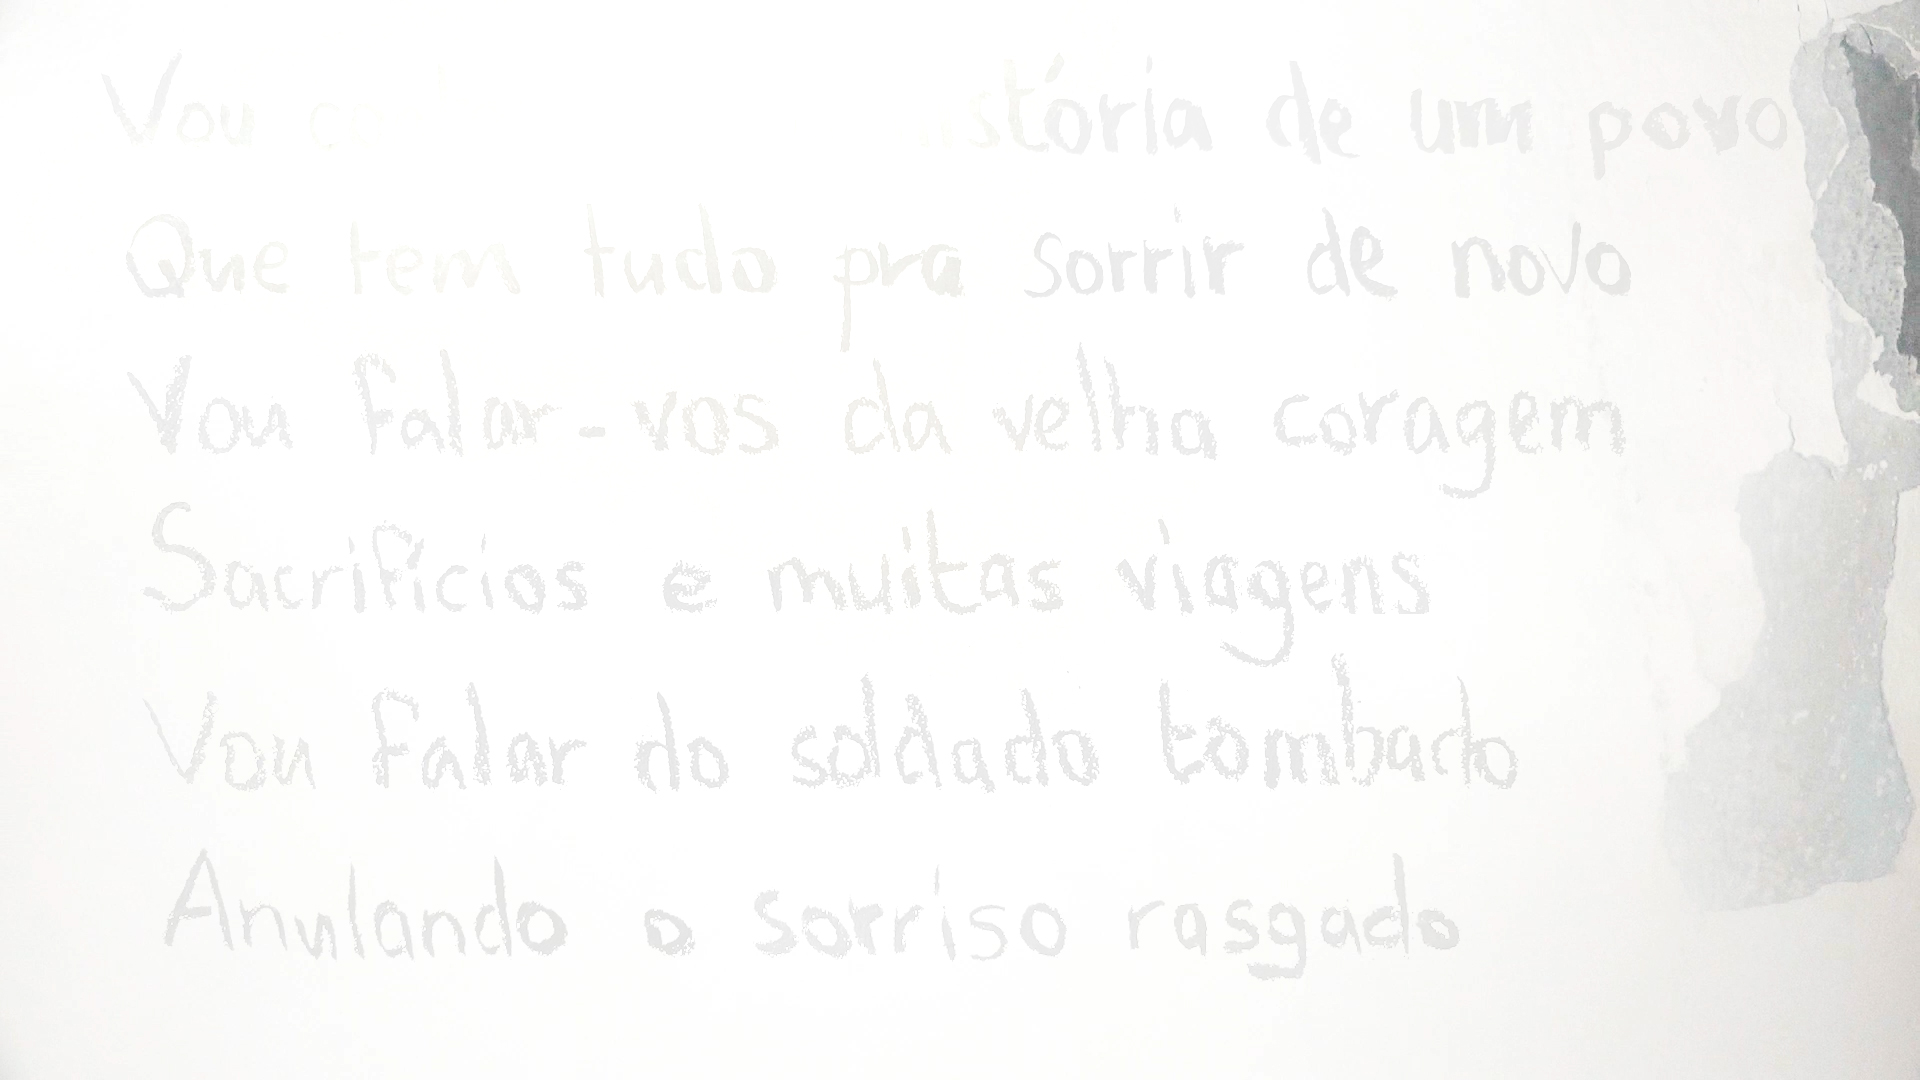 Vou história de um povo
Que tem tudo pra sorrir de novo
Vou falar-vos da velha coragem
Sacrifícios e muitas viagens
Vou falar do soldado tombado
Anulando o sorriso rasgado